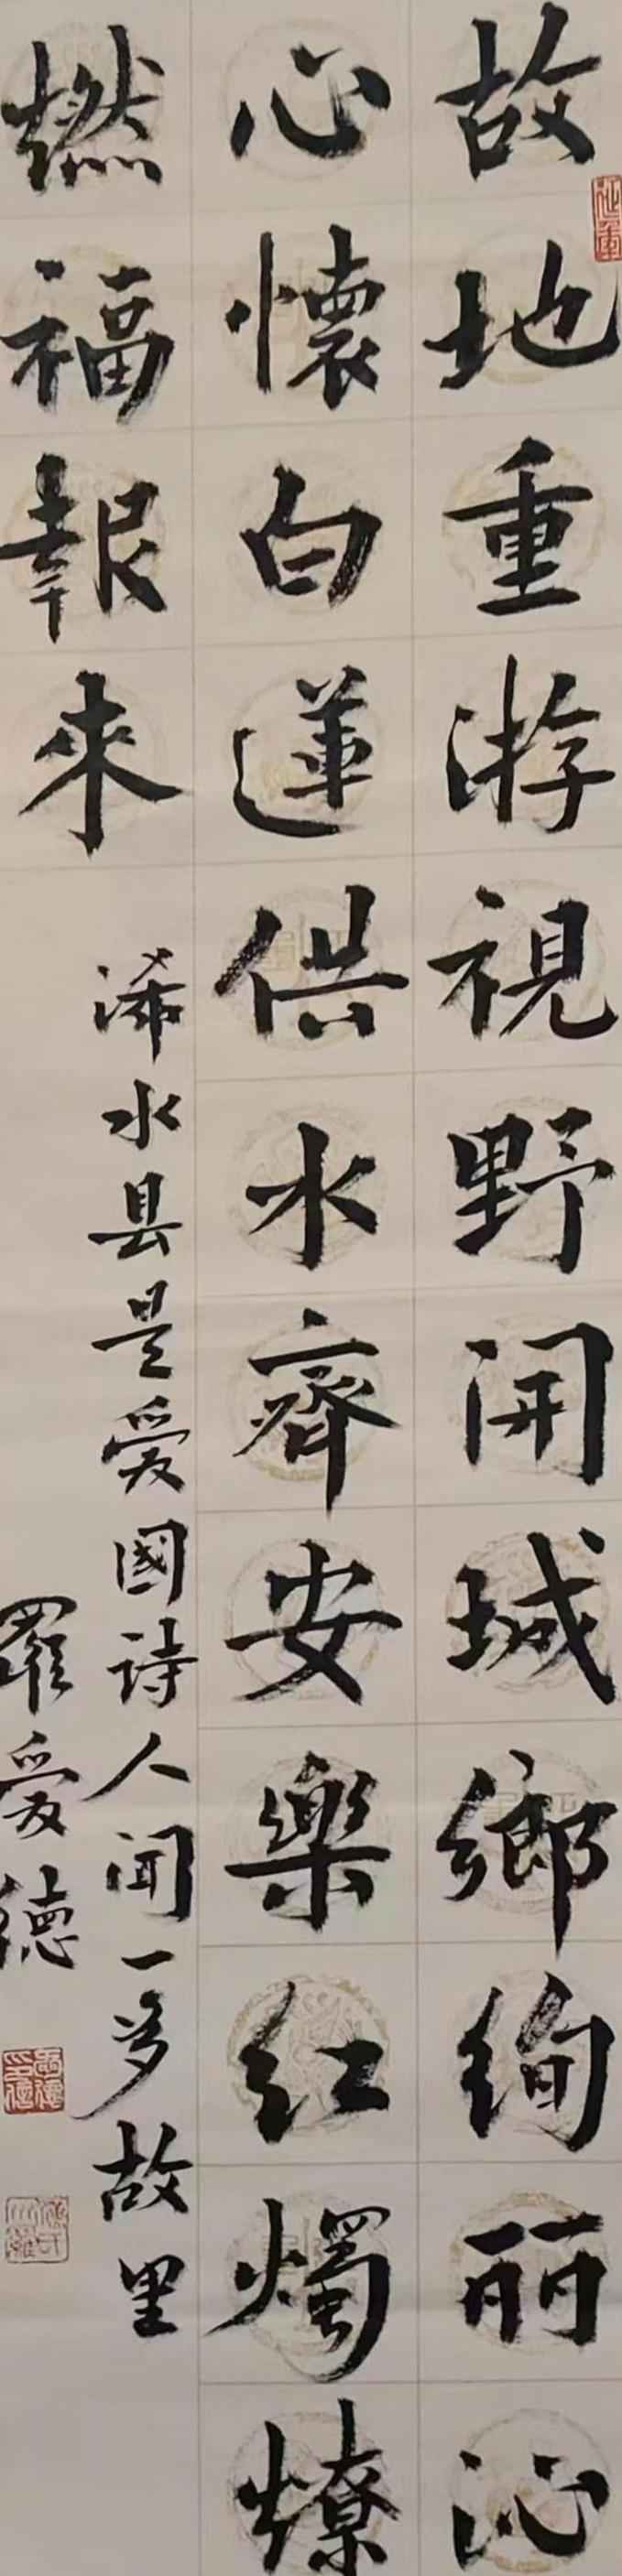 故地重游視野開城鄉絢丽沁
心懷白蓮供水齊安樂红燭燎
燃福報來
浠水县是爱國詩人聞一多故里
羅爱德